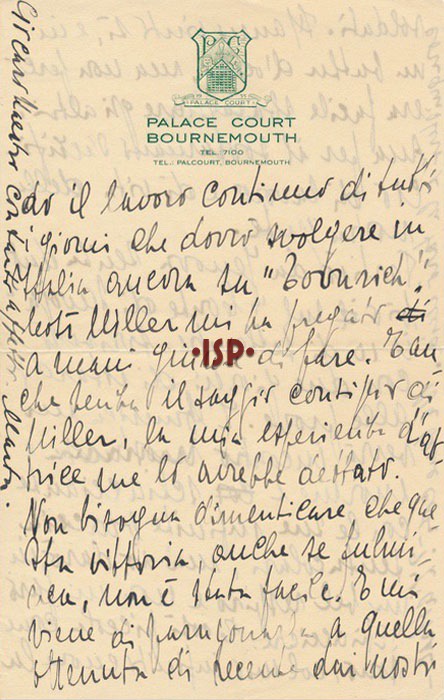 PALACE COURT
PALACE COURT
BOURNEMOUTH
TEL. 7100
TEL.: PALCOURT, BOURNEMOUTH
do il lavoro continuo di tutti
i giorni che dovrò svolgere in
Italia ancora su
Miller mi ha pregato di
a mani giunte di fare. E an
che senza il saggio consiglio di
Miller, la mia esperienza d'at
trice me lo avrebbe dettato.
Non bisogna dimenticare che que
sta vittoria, anche se fulmi
nea, non è stata facile. E mi
viene di paragonarla a quella
ottenuta di recente dai nostri
·ISP·
caro Maestro con tanto affetto. Marta